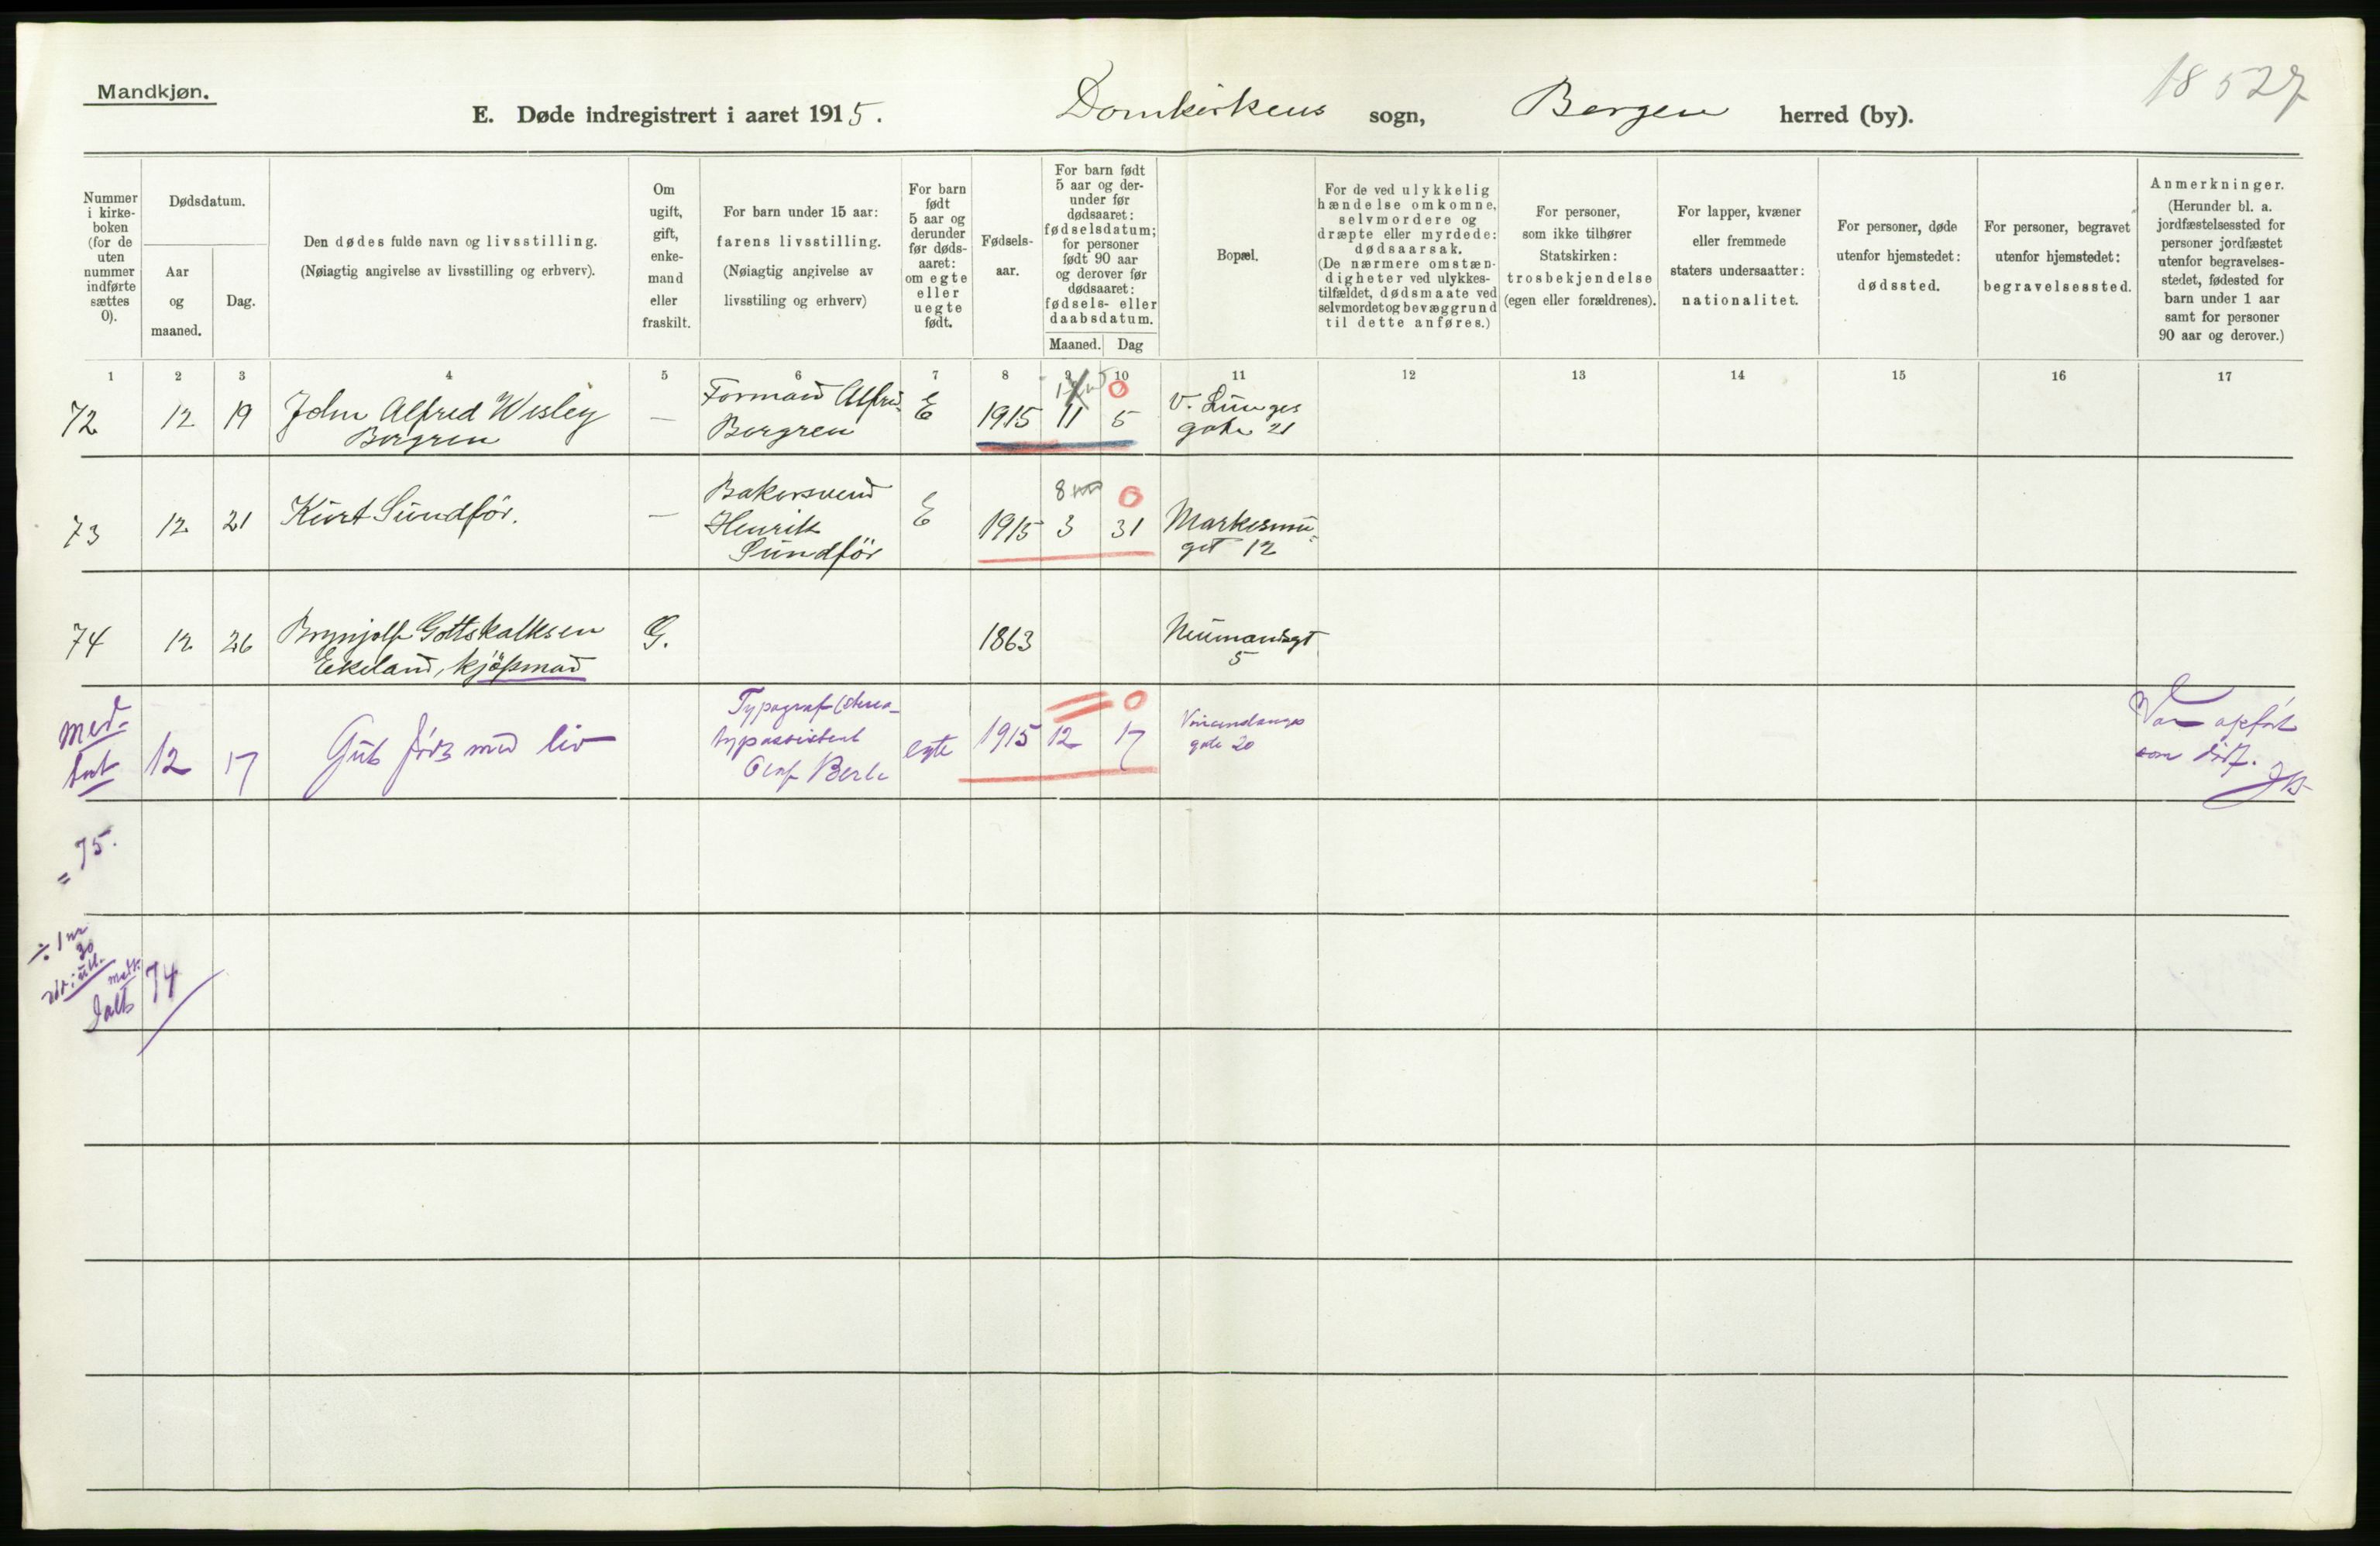 Mandkjøn.
E. Døde indregistrert i aaret 1915. Domkirkens sogn, Bergen herred (by).
18 527
Nummer i kirkeboken (for de uten nummer indførte sættes 0).
Dødsdatum.
Aar og maaned.
Dag.
Den dødes fulde navn og livsstilling.
(Nøiagtig angivelse av livsstilling og erhverv).
Om ugift, gift, enkemand eller fraskilt.
For barn under 15 aar: farens livsstilling.
(Nøiagtig angivelse av livsstiling og erhverv)
For barn født 5 aar og derunder før dødsaaret: om egte eller uegte født.
Fødselsaar.
For barn født 5 aar og derunder før dødsaaret: fødselsdatum; for personer født 90 aar og derover før dødsaaret: fødsels- eller daabsdatum.
Maaned. Dag
Bopæl.
For de ved ulykkelig hændelse omkomne, selvmordere og dræpte eller myrdede: dødsaarsak.
(De nærmere omstændigheter ved ulykkestilfældet, dødsmaate ved selvmordet og bevæggrund til dette anføres.)
For personer, som ikke tilhører Statskirken: trosbekjendelse (egen eller forældrenes).
For lapper, kvæner eller fremmede staters undersaatter: nationalitet.
For personer, døde utenfor hjemstedet: dødssted.
For personer, begravet utenfor hjemstedet: begravelsessted.
Anmerkninger.
(Herunder bl. a. jordfæstelsessted for personer jordfæstet utenfor begravelsesstedet, fødested for barn under 1 aar samt for personer 90 aar og derover.)
1 2 3 4 5 6 7 8 9 10 11 12 13 14 15 16 17
72 12 19 John Alfred Wesley — Formand Alfred E 1915 11 5 V. Lunges
Borgren Borgren gate 21
0
73 12 21 Kurt Sundför. — Bakersvend E 1915 3 31 Markesmu-
Henrik get 12
Sundför
8 0
74 12 26 Brynjolf Gottskalksen G. 1863 Neumandsgt
Ekeland, kjøpmand 5
Med-
tat 12 17 Gut født med liv Typograf
Olaf Berle egte 1915 12 17
gate 20
0
Var opført
som dødf.
= 75.
÷ 1 nr
30
Ialt 74